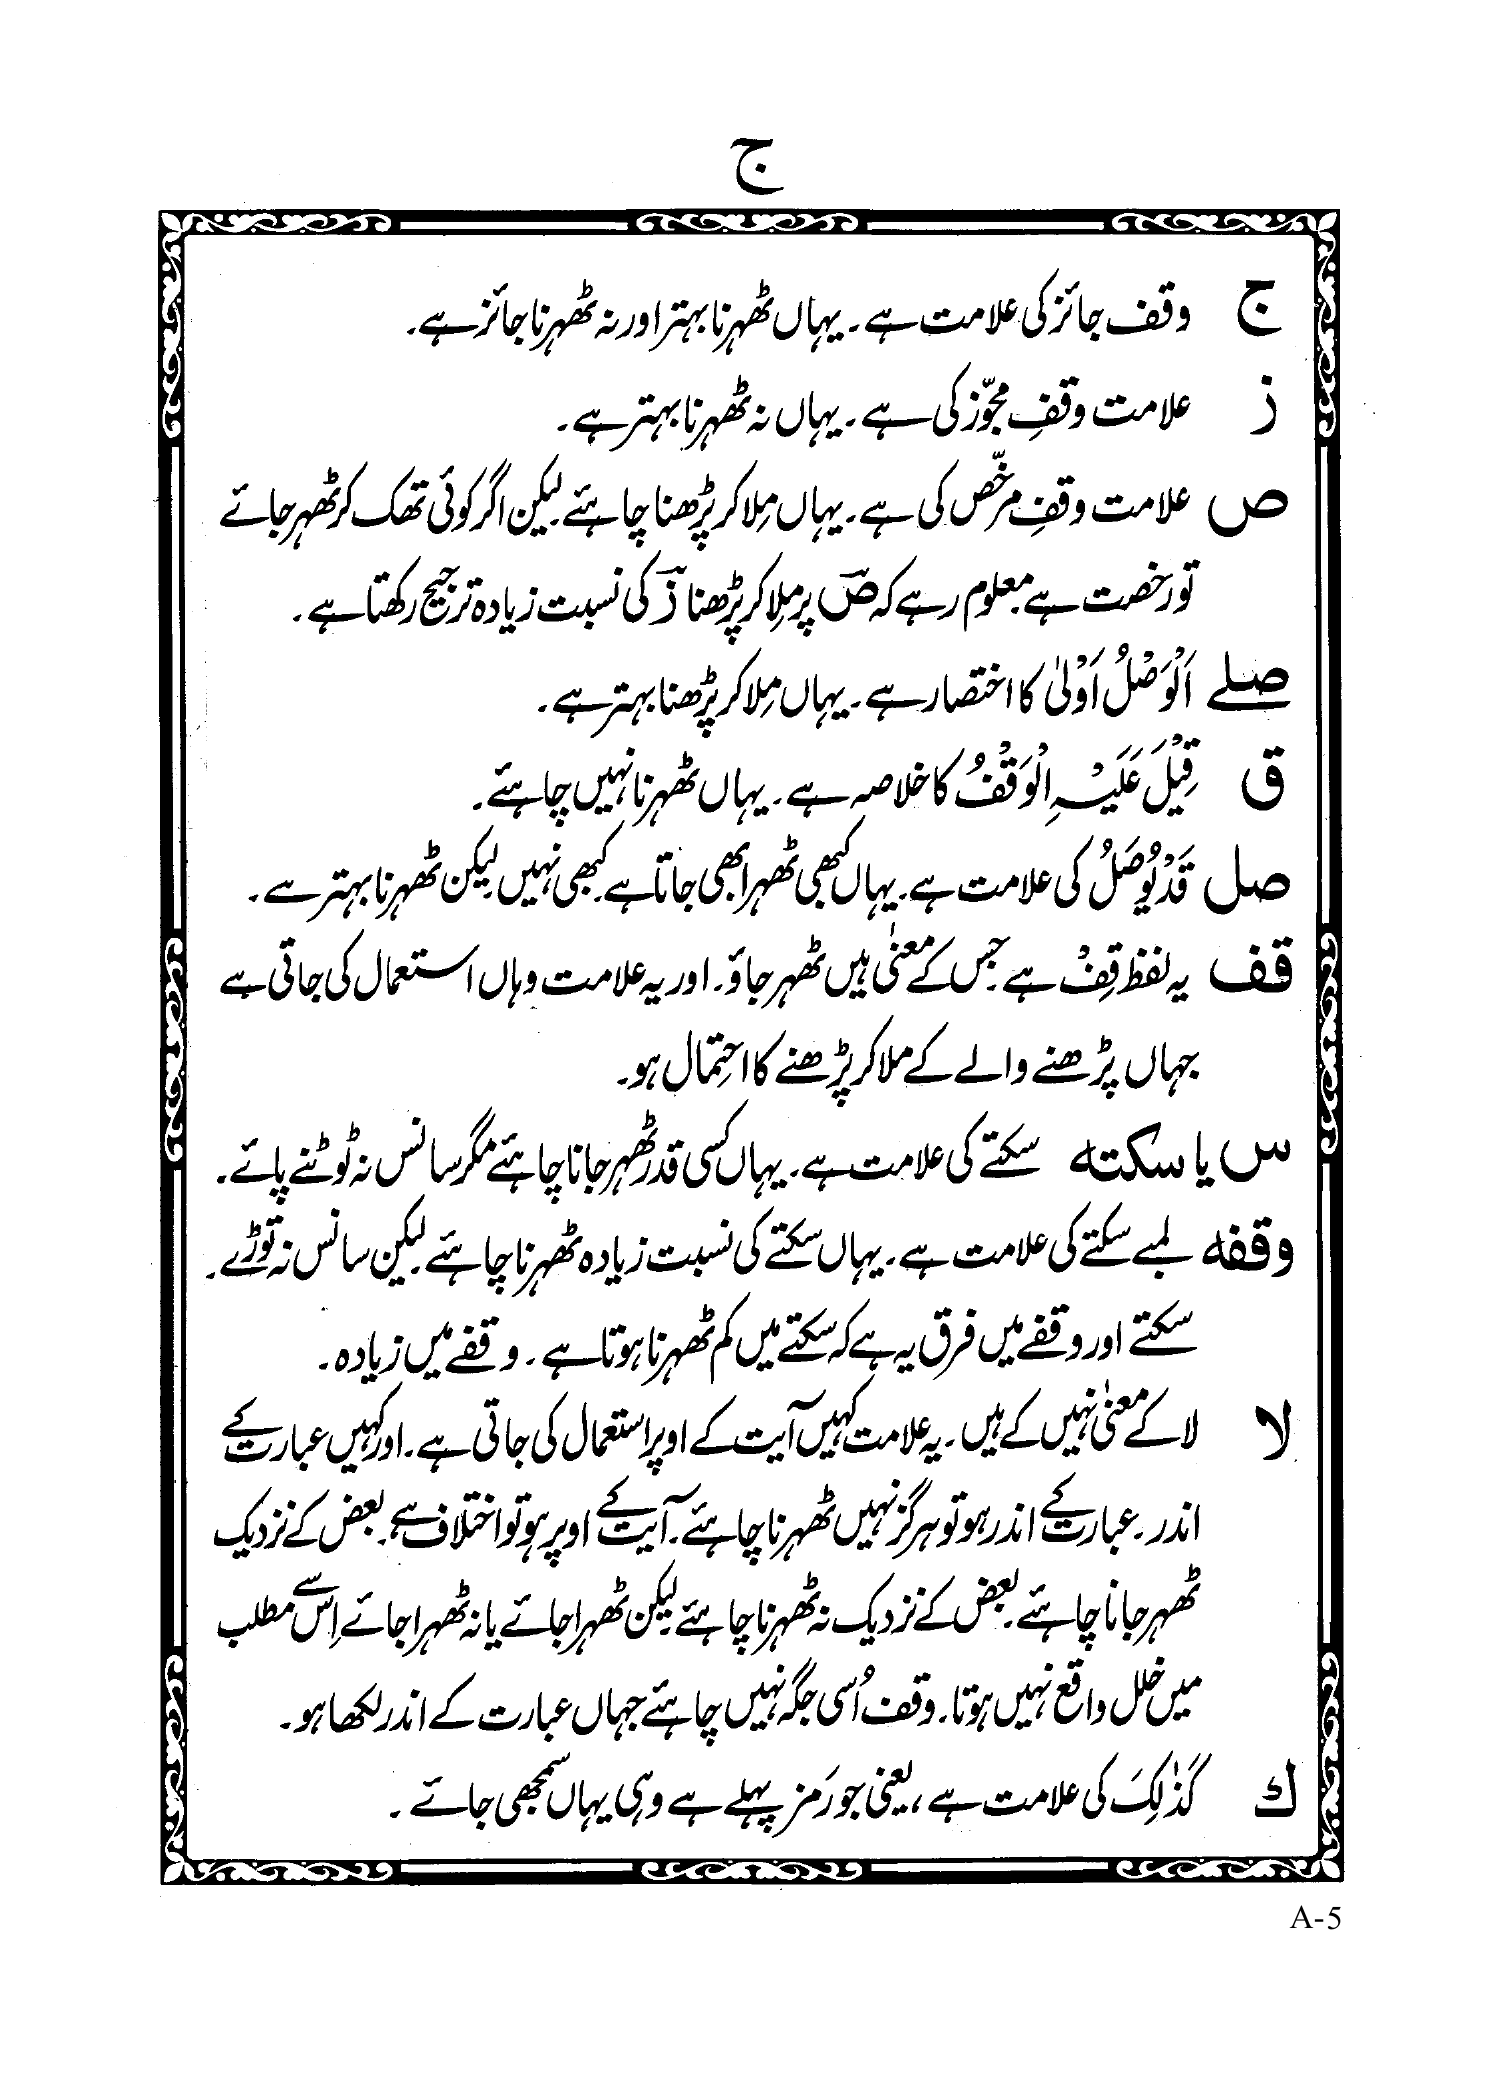 ج
ج وقف جائز کی علامت ہے۔ یہاں ٹھہرنا بہتر اور نہ ٹھہرنا جائز ہے۔
ز علامت وقفِ مجوّز کی ہے۔ یہاں نہ ٹھہرنا بہتر ہے۔
ص علامت وقفِ مرخّص کی ہے۔ یہاں مِلا کر پڑھنا چاہئے۔ لیکن اگر کوئی تھک کر ٹھہر جائے
تو رخصت ہے۔ معلوم رہے کہ صؔ پر مِلا کر پڑھنا زؔ کی نسبت زیادہ ترجیح رکھتا ہے۔
صلے اَلْوَصْلُ اَوْلیٰ کا اختصار ہے۔ یہاں مِلا کر پڑھنا بہتر ہے۔
ق قِیْلَ عَلَیْہِ الْوَقْفُ کا خلاصہ ہے۔ یہاں ٹھہرنا نہیں چاہئے۔
صل قَدْ یُوصَلُ کی علامت ہے۔ یہاں کبھی ٹھہرا بھی جاتا ہے۔ کبھی نہیں۔ لیکن ٹھہرنا بہتر ہے۔
قف یہ لفظ قِفْ ہے۔ جس کے معنیٰ ہیں ٹھہر جاؤ۔ اور یہ علامت وہاں استعمال کی جاتی ہے
جہاں پڑھنے والے کے ملا کر پڑھنے کا احتِمال ہو۔
س یا سکتہ سکتے کی علامت ہے۔ یہاں کسی قدر ٹھہر جانا چاہئے مگر سانس نہ ٹوٹنے پائے۔
وقفہ لمبے سکتے کی علامت ہے۔ یہاں سکتے کی نسبت زیادہ ٹھہرنا چاہئے۔ لیکن سانس نہ توڑے۔
سکتے اور وقفے میں فرق یہ ہے کہ سکتے میں کم ٹھہرنا ہوتا ہے۔ وقفے میں زیادہ۔
لا لا کے معنیٰ نہیں کے ہیں۔ یہ علامت کہیں آیت کے اوپر استعمال کی جاتی ہے۔ اور کہیں عبارت کے
اندر۔ عبارت کے اندر ہو تو ہرگز نہیں ٹھہرنا چاہئے۔ آیت کے اوپر ہو تو اختلاف ہے۔ بعض کے نزدیک
ٹھہر جانا چاہئے۔ بعض کے نزدیک نہ ٹھہرنا چاہئے۔ لیکن ٹھہرا جائے یا نہ ٹھہرا جائے اِس سے مطلب
میں خلل واقع نہیں ہوتا۔ وقف اُسی جگہ نہیں چاہئے جہاں عبارت کے اندر لکھا ہو۔
ك کَذٰلِکَ کی علامت ہے، یعنی جو رَمز پہلے ہے وہی یہاں سمجھی جائے۔
A-5